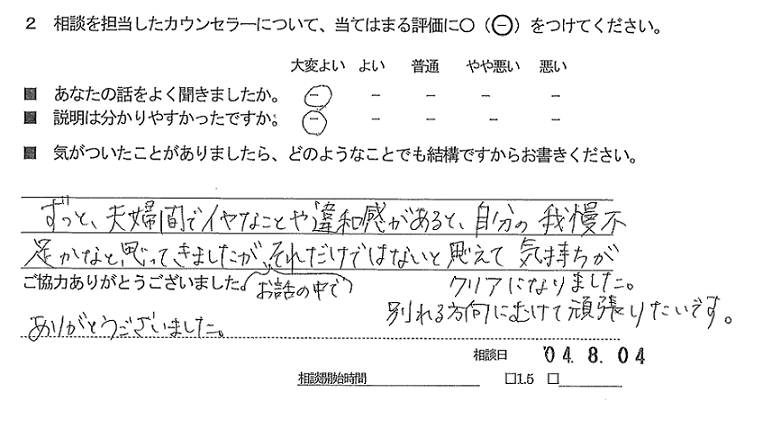 2 相談を担当したカウンセラーについて、当てはまる評価に○（㊀）をつけてください。
大変よい よい 普通 やや悪い 悪い
■ あなたの話をよく聞きましたか。 － － － － －
■ 説明は分かりやすかったですか。 － － － － －
■ 気がついたことがありましたら、どのようなことでも結構ですからお書きください。
ずっと、夫婦間でイヤなことや違和感があると、自分の我慢不
足かなと、思ってきましたが、それだけではないと思えて気持ちが
ご協力ありがとうございました。 お話の中で クリアになりました。
別れる方向にむけて頑張りたいです。
ありがとうございました。
相談日 '04. 8. 04
相談開始時間 □1.5 □